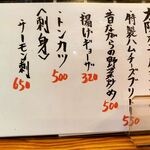 特製ハムチーズ
550
昔ながらの野菜炒め
500
揚げギョーザ
320
・トンカツ
500
〈刺身〉
・サーモン刺
650